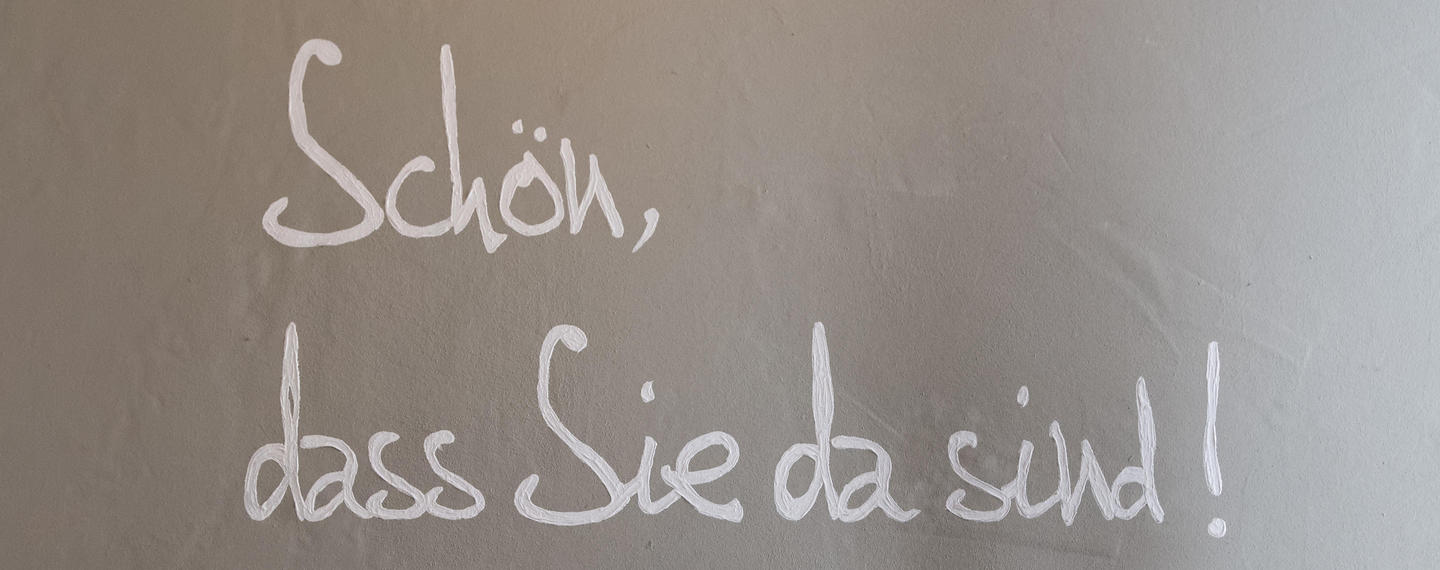 Schön,
dass Sie da sind!